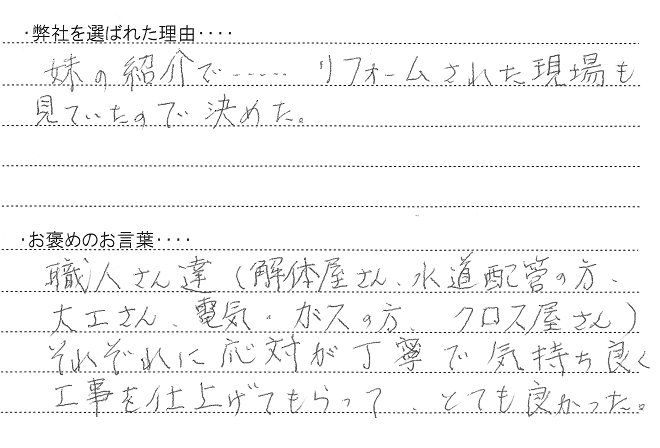 ・弊社を選ばれた理由・・・・
妹の紹介で……リフォームされた現場も
見ていたので決めた。
・お褒めのお言葉・・・・
職人さん達(解体屋さん、水道配管の方、
大工さん、電気・ガスの方、クロス屋さん)
それぞれに応対が丁寧で気持ち良く
工事を仕上げてもらって、とても良かった。